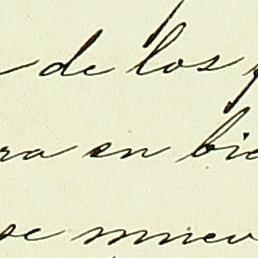 de los
ra en bie
se mnev